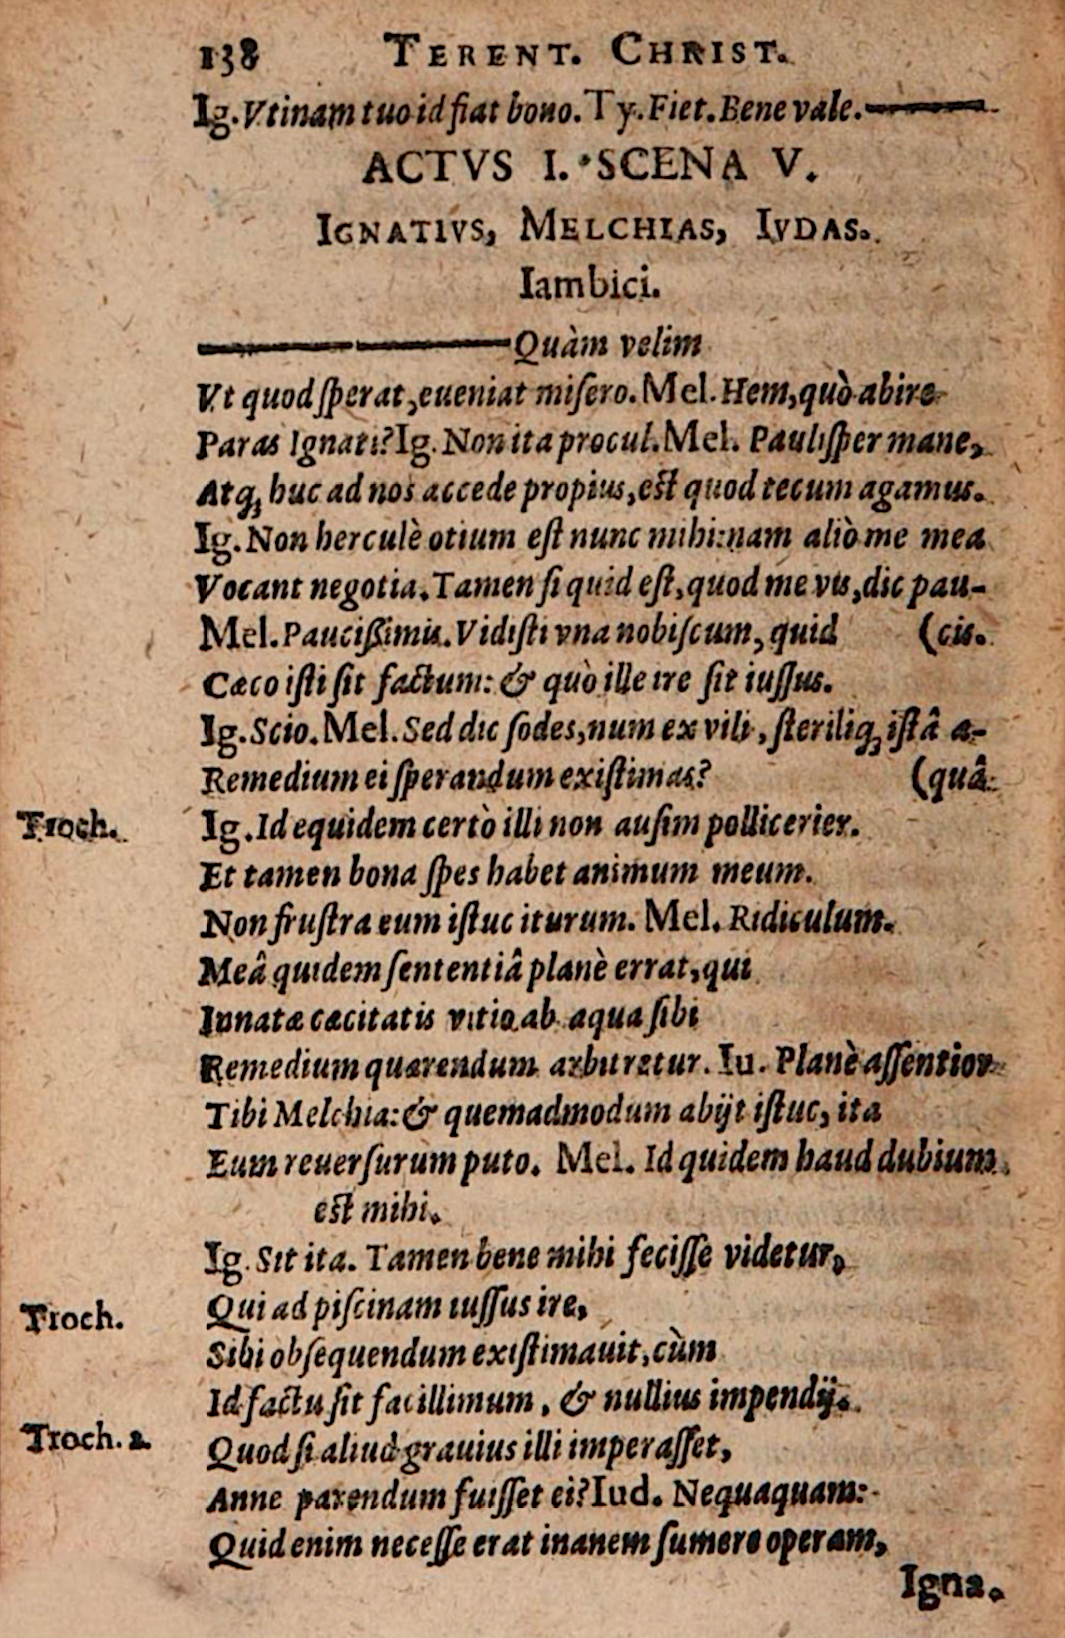 138 TERENT. CHRIST.
Ig. Vtinam tuo id fiat bono. Ty. Fiet. Bene vale.
ACTVS I. SCENA V.
IGNATIVS, MELCHIAS, IVDAS.
Iambici.
Quàm velim
Vt quod ſperat, eueniat miſero. Mel. Hem, quò abire
Paras Ignati? Ig. Non ita procul. Mel. Pauliſper mane,
Atq; huc ad nos accede propius, eſt quod tecum agamus.
Ig. Non herculè otium eſt nunc mihi: nam aliò me mea
Vocant negotia. Tamen ſi quid eſt, quod me vis, dic pau-
Mel. Pauciſſimis. Vidiſti vna nobiſcum, quid (cis.
Cæco iſti ſit factum: & quò ille ire ſit iuſſus.
Ig. Scio. Mel. Sed dic ſodes, num ex vili, ſteriliq; iſtâ a-
Remedium ei ſperandum exiſtimas? (quâ
Troch. Ig. Id equidem certò illi non auſim pollicerier.
Et tamen bona ſpes habet animum meum.
Non fruſtra eum iſtuc iturum. Mel. Ridiculum.
Meâ quidem ſententiâ planè errat, qui
Innatæ cæcitatis vitio ab aqua ſibi
Remedium quærendum arbitretur. Iu. Planè aſſentior
Tibi Melchia: & quemadmodum abijt iſtuc, ita
Eum reuerſurum puto. Mel. Id quidem haud dubium
eſt mihi.
Ig. Sit ita. Tamen bene mihi feciſſe videtur,
Troch. Qui ad piſcinam iuſſus ire,
Sibi obſequendum exiſtimauit, cùm
Id factu ſit facillimum, & nullius impendij.
Troch. 2. Quod ſi aliud grauius illi imperaſſet,
Anne parendum fuiſſet ei? Iud. Nequaquam:
Quid enim neceſſe erat inanem ſumere operam,
Igna.